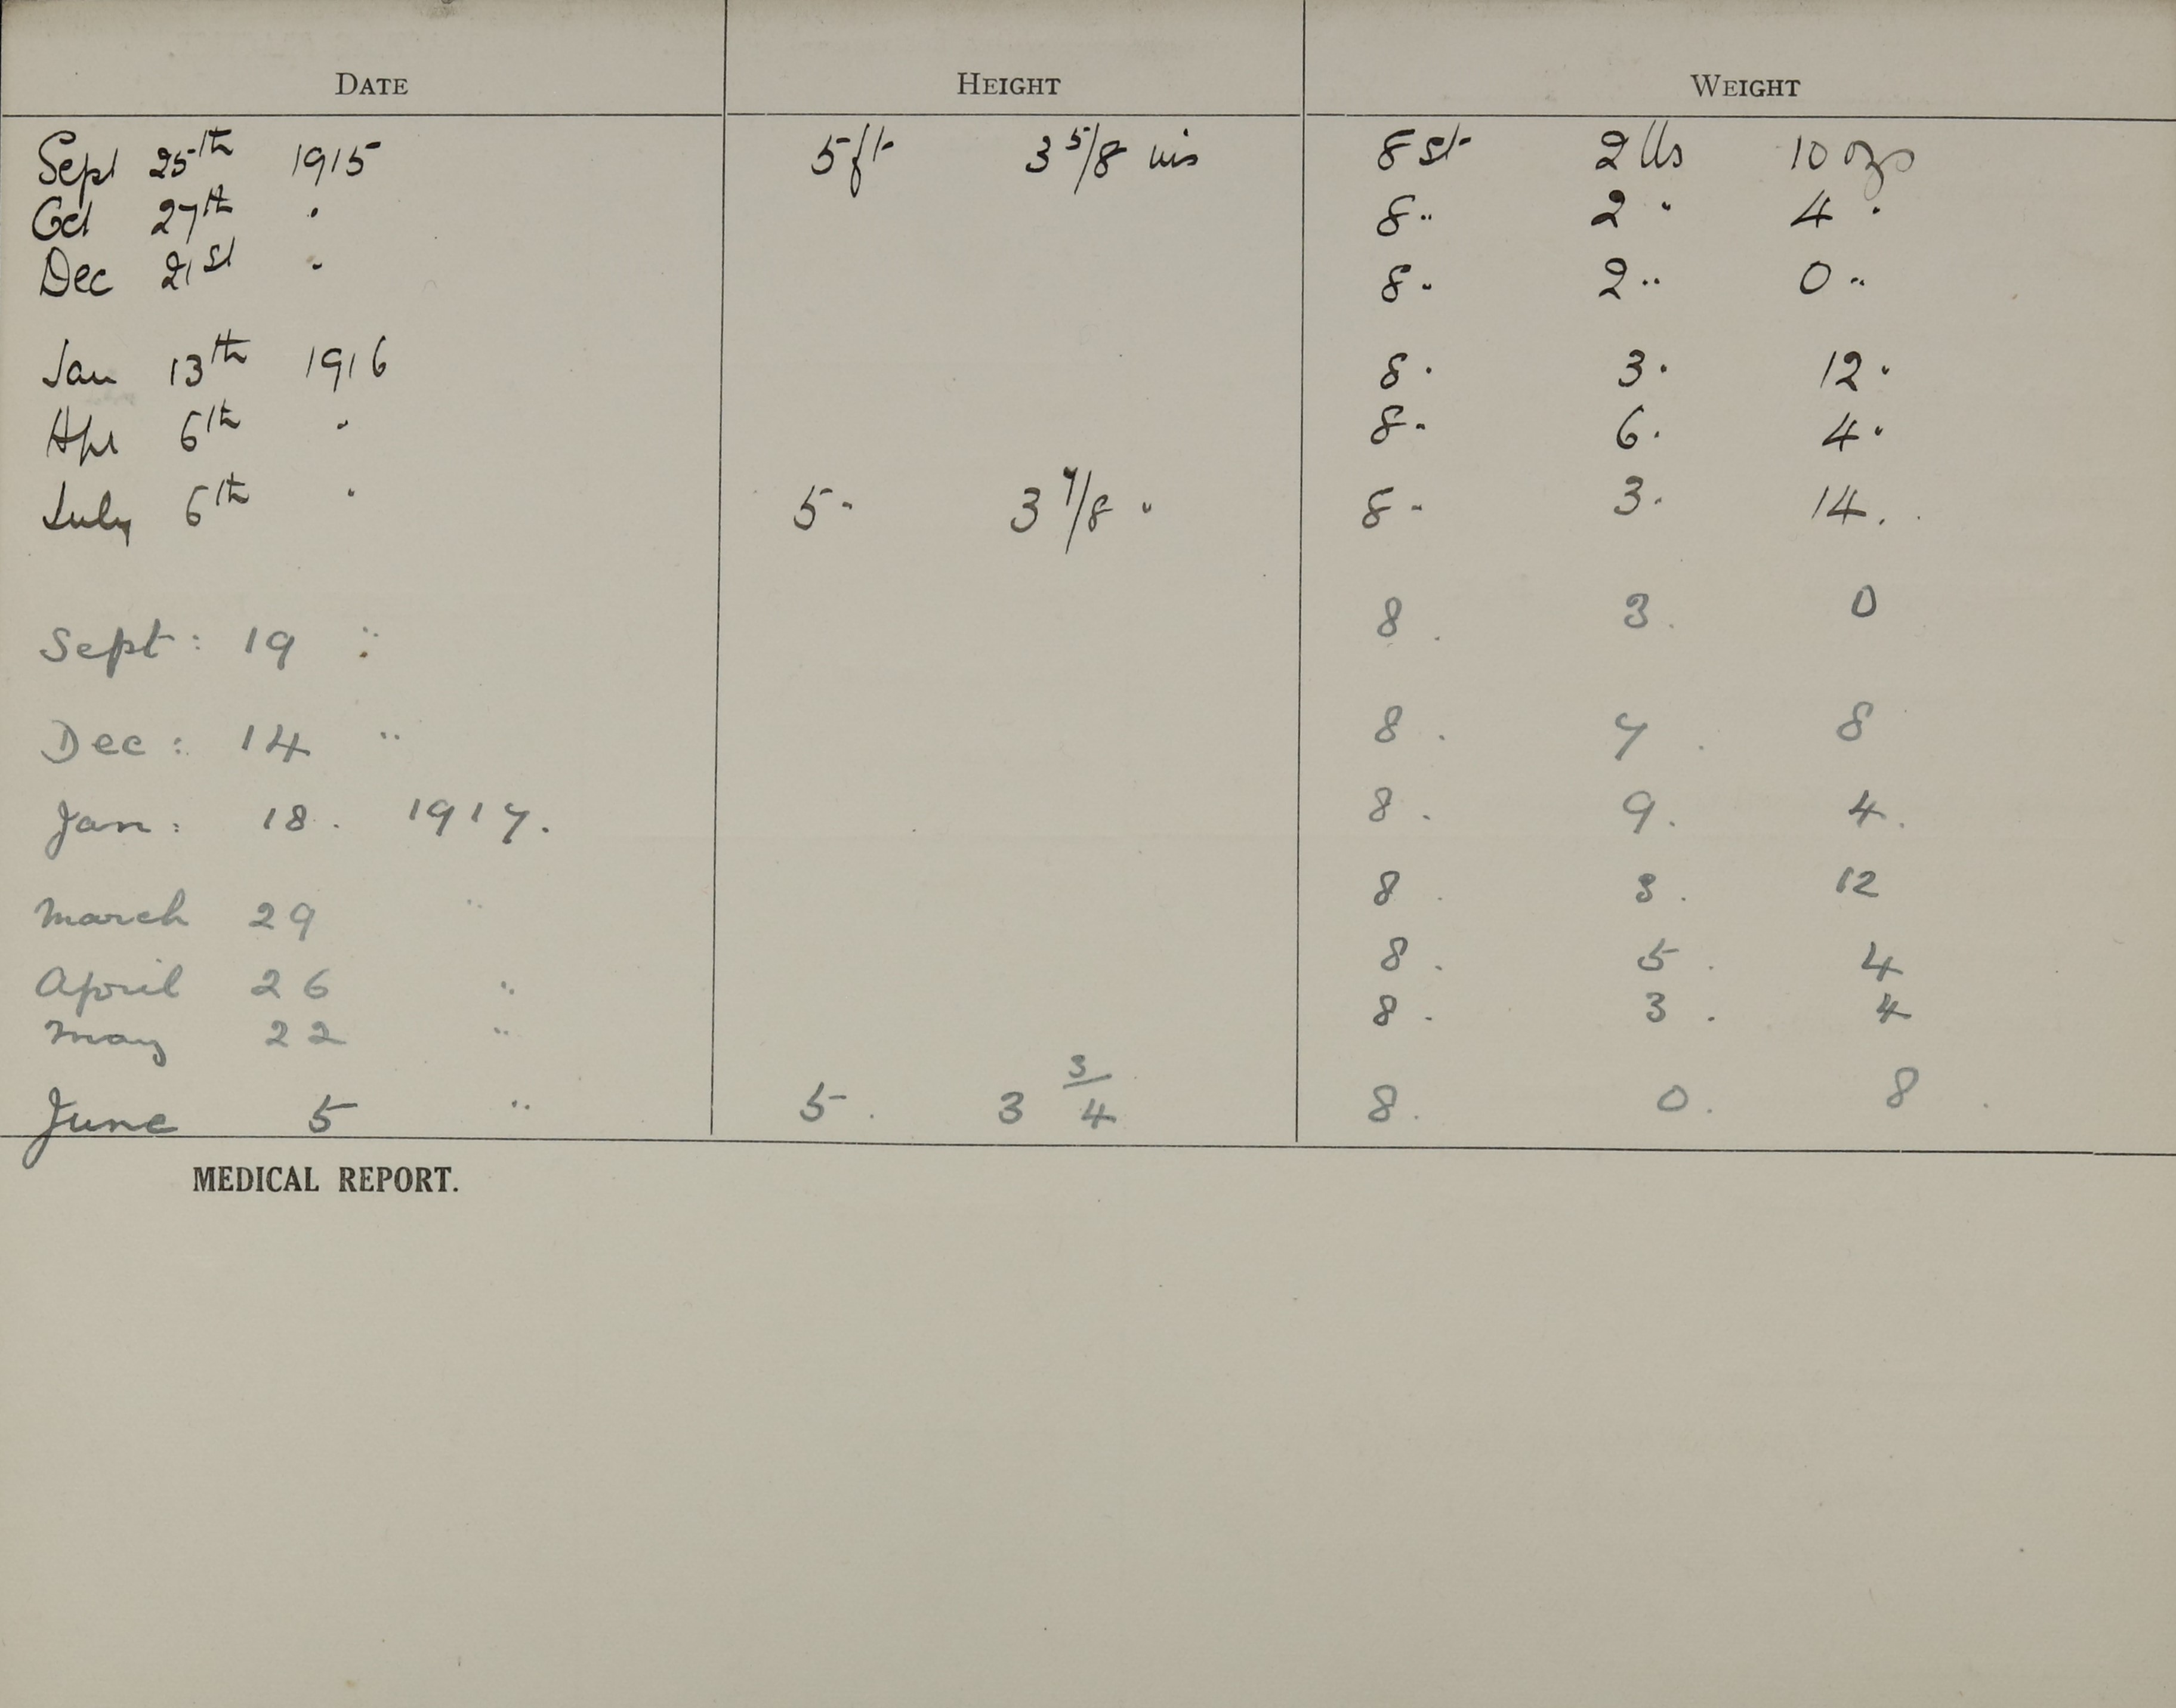 DATE HEIGHT WEIGHT
Sept 25th 1915 5ft 3 5/8 ins 8 st 2 lbs 10 ozs
Oct 27th " 8 " 2 " 4 "
Dec 21st " 8 " 2 " 0 "
Jan 13th 1916 8 " 3 " 12 "
Apl 6th " 8 " 6 " 4 "
July 6th " 5 " 3 7/8 " 8 " 3 " 14 "
Sept: 19 " 8 . 3 . 0
Dec: 14 " 8 . 7 . 8
Jan: 18. 1917. 8 . 9 . 4 .
March 29 " 8 . 3 . 12
April 26 " 8 . 5 . 4
May 22 " 8 . 3 . 4
June 5 " 5 . 3 3/4 8 . 0 . 8 .
MEDICAL REPORT.